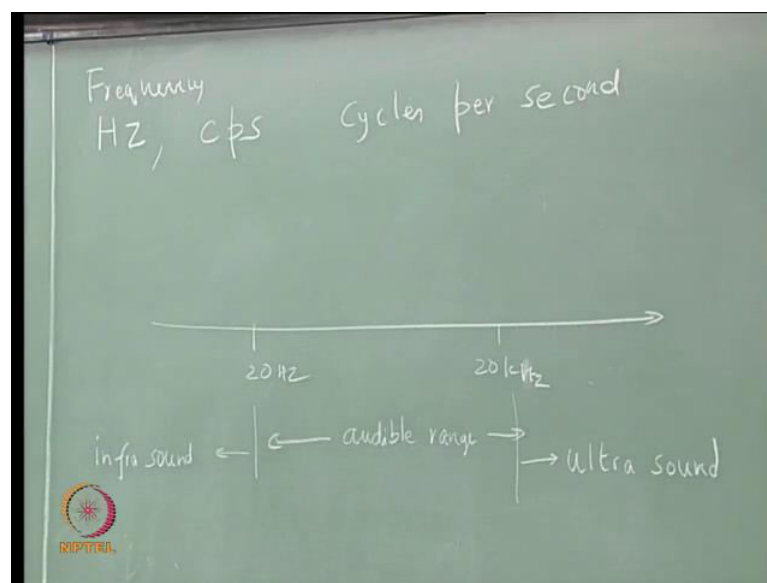 Frequency
HZ, cps cycles per second
20HZ 20kHz
infra sound ← ← audible range → → ultra sound
NPTEL